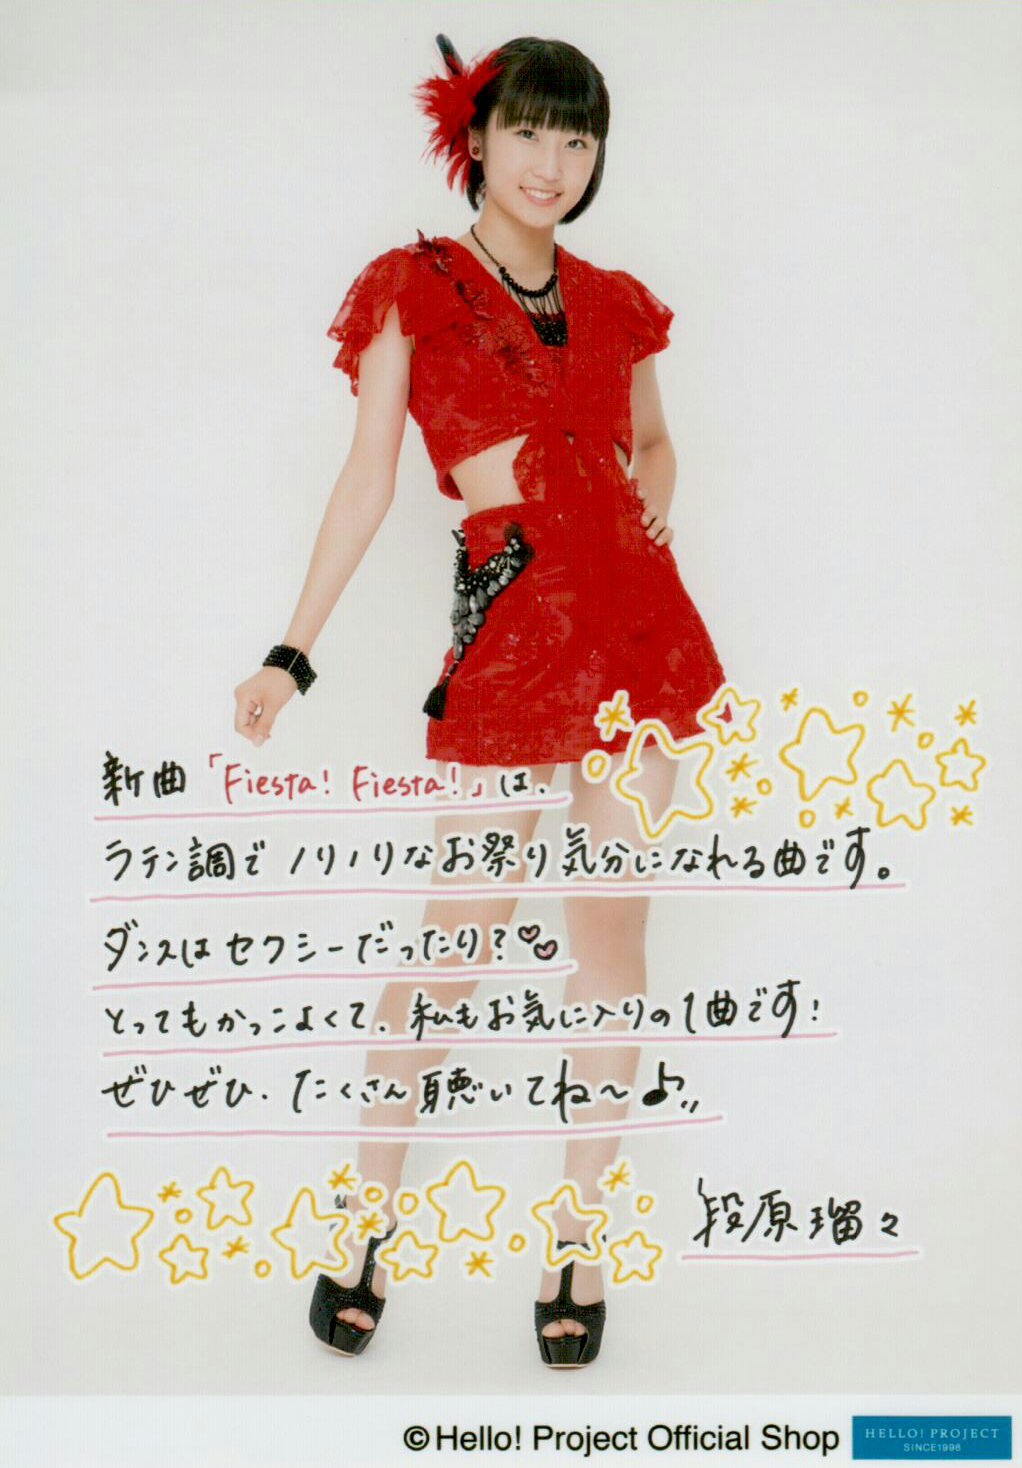 新曲「Fiesta! Fiesta!」は、
ラテン調でノリノリなお祭り気分になれる曲です。
ダンスはセクシーだったり?
とってもかっこよくて、私もお気に入りの1曲です!
ぜひぜひ、たくさん聴いてね〜♪
段原瑠々
©Hello! Project Official Shop
HELLO! PROJECT
SINCE1998